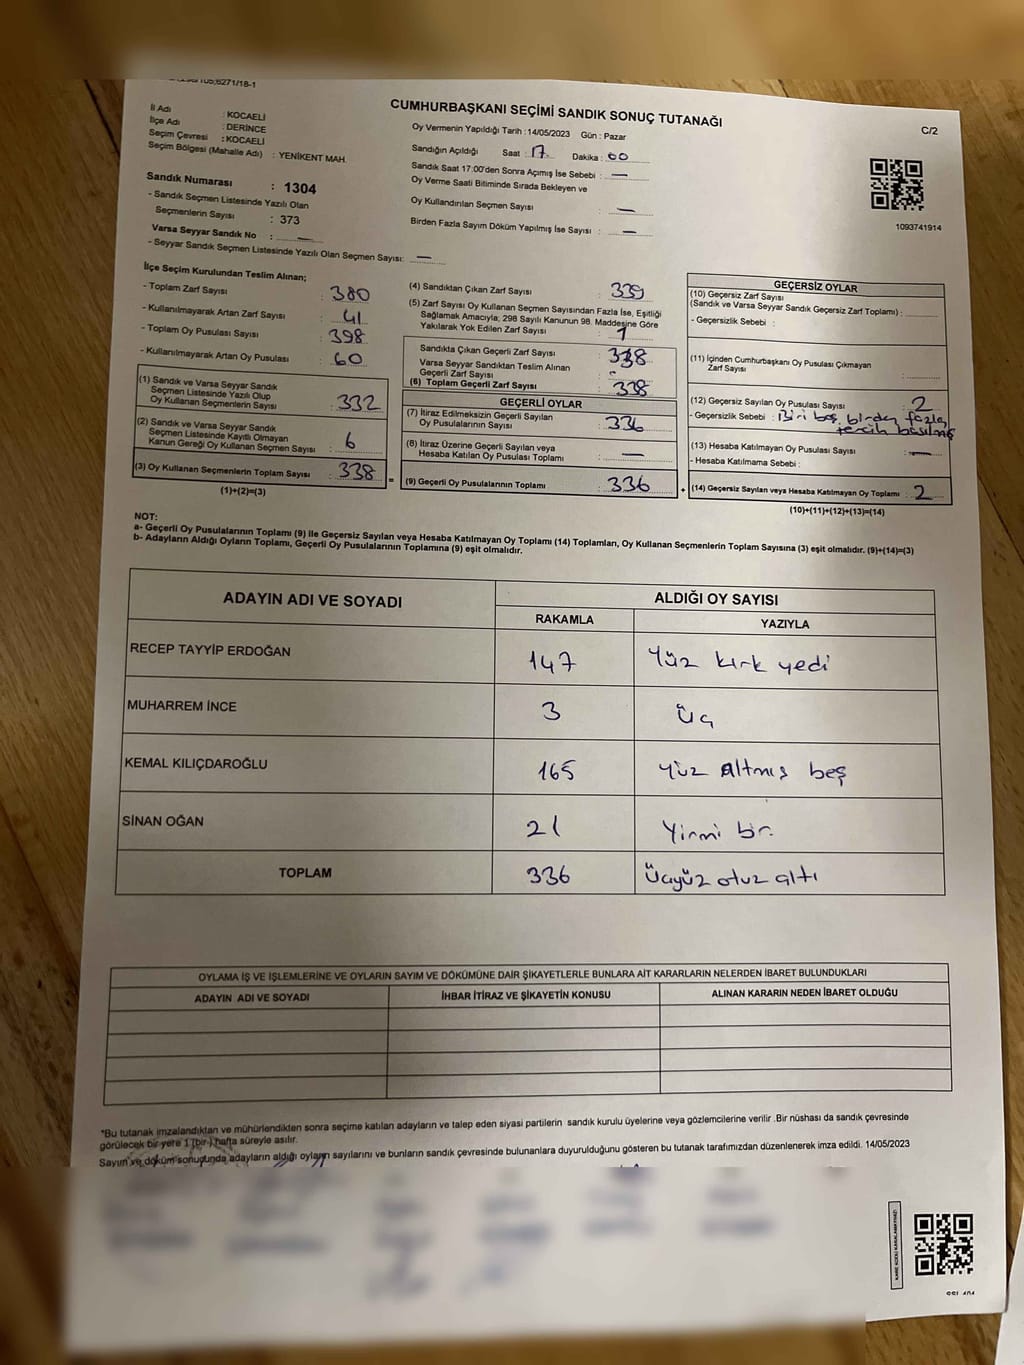 CUMHURBAŞKANI SEÇİMİ SANDIK SONUÇ TUTANAĞI
C/2
İl Adı : KOCAELİ
İlçe Adı : DERİNCE
Seçim Çevresi : KOCAELİ
Seçim Bölgesi (Mahalle Adı) : YENİKENT MAH.
Sandık Numarası : 1304
- Sandık Seçmen Listesinde Yazılı Olan
Seçmenlerin Sayısı : 373
Varsa Seyyar Sandık No : —
- Seyyar Sandık Seçmen Listesinde Yazılı Olan Seçmen Sayısı: —
Oy Vermenin Yapıldığı Tarih : 14/05/2023 Gün : Pazar
Sandığın Açıldığı Saat : 17 Dakika : 00
Sandık Saat 17:00'den Sonra Açımış İse Sebebi : —
Oy Verme Saati Bitiminde Sırada Bekleyen ve
Oy Kullandırılan Seçmen Sayısı : —
Birden Fazla Sayım Döküm Yapılmış İse Sayısı : —
1093741914
İlçe Seçim Kurulundan Teslim Alınan;
- Toplam Zarf Sayısı : 380
- Kullanılmayarak Artan Zarf Sayısı : 41
- Toplam Oy Pusulası Sayısı : 398
- Kullanılmayarak Artan Oy Pusulası : 60
(1) Sandık ve Varsa Seyyar Sandık
Seçmen Listesinde Yazılı Olup
Oy Kullanan Seçmenlerin Sayısı : 332
(2) Sandık ve Varsa Seyyar Sandık
Seçmen Listesinde Kayıtlı Olmayan
Kanun Gereği Oy Kullanan Seçmen Sayısı : 6
(3) Oy Kullanan Seçmenlerin Toplam Sayısı : 338
(1)+(2)=(3)
(4) Sandıktan Çıkan Zarf Sayısı : 339
(5) Zarf Sayısı Oy Kullanan Seçmen Sayısından Fazla İse, Eşitliği
Sağlamak Amacıyla; 298 Sayılı Kanunun 98. Maddesine Göre
Yakılarak Yok Edilen Zarf Sayısı : 1
Sandıkta Çıkan Geçerli Zarf Sayısı : 338
Varsa Seyyar Sandıktan Teslim Alınan
Geçerli Zarf Sayısı : -
(6) Toplam Geçerli Zarf Sayısı : 338
GEÇERLİ OYLAR
(7) İtiraz Edilmeksizin Geçerli Sayılan
Oy Pusulasının Sayısı : 336
(8) İtiraz Üzerine Geçerli Sayılan veya
Hesaba Katılan Oy Pusulası Toplamı : —
(9) Geçerli Oy Pusulalarının Toplamı : 336
GEÇERSİZ OYLAR
(10) Geçersiz Zarf Sayısı
(Sandık ve Varsa Seyyar Sandık Geçersiz Zarf Toplamı) :
- Geçersizlik Sebebi :
(11) İçinden Cumhurbaşkanı Oy Pusulası Çıkmayan
Zarf Sayısı :
(12) Geçersiz Sayılan Oy Pusulası Sayısı : 2
- Geçersizlik Sebebi : Biri boş, birden fazla
tercih basılmış
(13) Hesaba Katılmayan Oy Pusulası Sayısı : —
- Hesaba Katılmama Sebebi :
(14) Geçersiz Sayılan veya Hesaba Katılmayan Oy Toplamı : 2
(10)+(11)+(12)+(13)=(14)
NOT:
a- Geçerli Oy Pusulalarının Toplamı (9) ile Geçersiz Sayılan veya Hesaba Katılmayan Oy Toplamı (14) Toplamları, Oy Kullanan Seçmenlerin Toplam Sayısına (3) eşit olmalıdır. (9)+(14)=(3)
b- Adayların Aldığı Oyların Toplamı, Geçerli Oy Pusulalarının Toplamına (9) eşit olmalıdır.
ADAYIN ADI VE SOYADI
ALDIĞI OY SAYISI
RAKAMLA YAZIYLA
RECEP TAYYİP ERDOĞAN 147 Yüz kırk yedi
MUHARREM İNCE 3 Üç
KEMAL KILIÇDAROĞLU 165 Yüz altmış beş
SİNAN OĞAN 21 Yirmi bir
TOPLAM 336 Üçyüz otuz altı
OYLAMA İŞ VE İŞLEMLERİNE VE OYLARIN SAYIM VE DÖKÜMÜNE DAİR ŞİKAYETLERLE BUNLARA AİT KARARLARIN NELERDEN İBARET BULUNDUKLARI
ADAYIN ADI VE SOYADI İHBAR İTİRAZ VE ŞİKAYETİN KONUSU ALINAN KARARIN NEDEN İBARET OLDUĞU
*Bu tutanak imzalandıktan ve mühürlendikten sonra seçime katılan adayların ve talep eden siyasi partilerin sandık kurulu üyelerine veya gözlemcilerine verilir .Bir nüshası da sandık çevresinde
görülecek bir yere 1 (bir) hafta süreyle asılır.
Sayım ve döküm sonucunda adayların aldığı oyların sayılarını ve bunların sandık çevresinde bulunanlara duyurulduğunu gösteren bu tutanak tarafımızdan düzenlenerek imza edildi. 14/05/2023